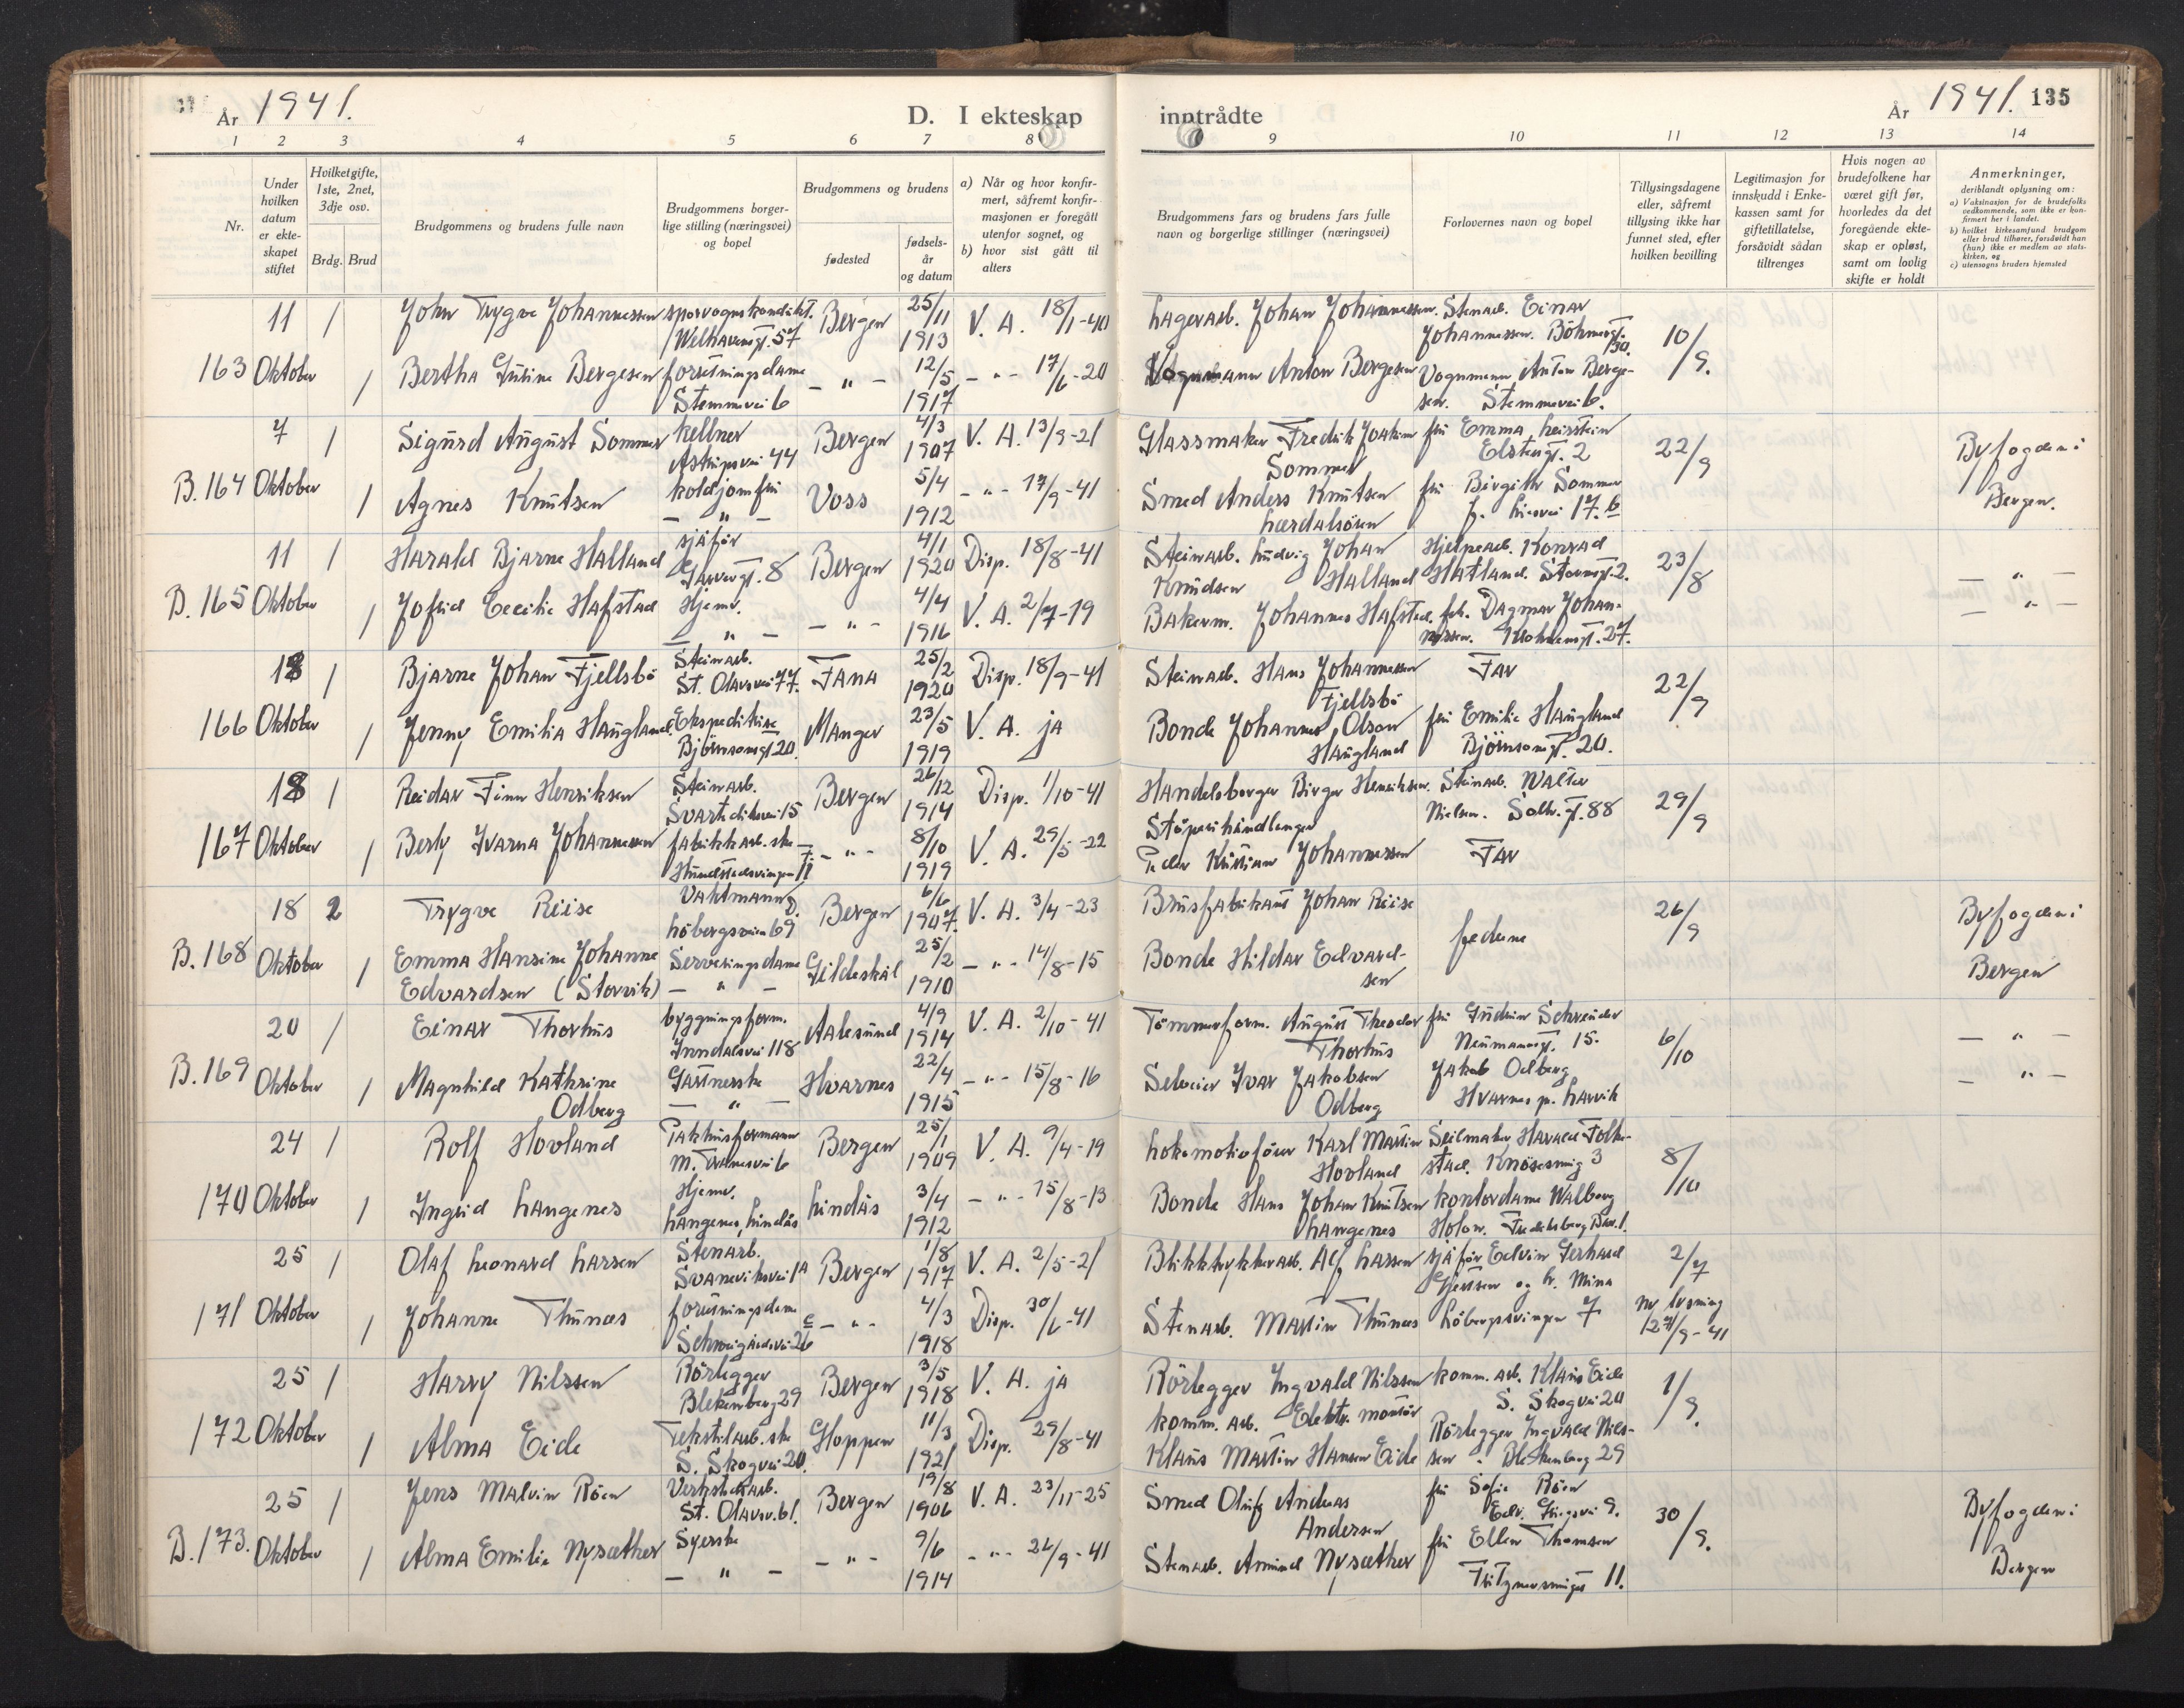 År 1941.
D. I ekteskap inntrådte
År 1941. 135
1 2 3 4 5 6 7 8 9 10 11 12 13 14
Nr.
Under hvilken datum er ekteskapet stiftet
Hvilket gifte, 1ste, 2net, 3dje osv.
Brdg. Brud
Brudgommens og brudens fulle navn
Brudgommens borgerlige stilling (næringsvei) og bopel
Brudgommens og brudens
fødested
fødselsår og datum
a) Når og hvor konfirmert, såfremt konfirmasjonen er foregått utenfor sognet, og
b) hvor sist gått til alters
Brudgommens fars og brudens fars fulle navn og borgerlige stillinger (næringsvei)
Forlovernes navn og bopel
Tillysingsdagene eller, såfremt tillysing ikke har funnet sted, efter hvilken bevilling
Legitimasjon for innskudd i Enkekassen samt for giftetillatelse, forsåvidt sådan tiltrenges
Hvis nogen av brudefolkene har været gift før, hvorledes da det foregående ekteskap er opløst, samt om lovlig skifte er holdt
Anmerkninger,
deriblandt oplysning om:
a) Vaksinasjon for de brudefolks vedkommende, som ikke er konfirmert her i landet.
b) hvilket kirkesamfund brudgom eller brud tilhører, forsåvidt han (hun) ikke er medlem av statskirken, og
c) utensogns bruders hjemsted
11 1 John Trygve Johannessen sporvognskondukt. Welhavensgt. 57 Bergen 25/11 1913 V. A. 18/1-40 Lagerarb. Johan Johannessen. Stenarb. Einar Johannessen. Böhmergt. 30. 10/9.
163 Oktober 1 Bertha Gurine Bergesen forretningsdame Stemmevei 6 - " - 12/5 1917 - " - 17/6-20 Vognmann Anton Bergesen Vognmann Anton Bergesen. Stemmevei 6.
7 1 Sigurd August Sommer kellner Astrupsvei 44 Bergen 4/3 1907 V. A. 13/9-21 Glassmaker Fredrik Joakim Sommer fru Emma Leirstein Elstersgt. 2 22/9 Byfogden i
B. 164 Oktober 1 Agnes Knutsen koldjomfru - " - Voss 5/4 1912 - " - 17/9-41 Smed Anders Knutsen Lærdalsören fru Birgith Sommer J. Liesvei 17. b Bergen.
11 1 Harald Bjarne Halland sjåför Garvergt. 8 Bergen 4/1 1920 Disp. 18/8-41 Steinarb. Ludvig Johan Knudsen Halland Hjelpearb. Konrad Hatland. Stormgt. 2. 23/8 - " -
B. 165 Oktober 1 Jofrid Cecilie Hafstad Hjemv. - " - - " - 4/4 1916 V. A. 2/7-19 Bakerm. Johannes Hafstad. frk. Dagmar Johannessen. Krohnensgt. 27. - " -
18 1 Bjarne Johan Fjellsbö Steinarb. St. Olavsvei 77. Fana 25/2 1920 Disp. 18/9-41 Steinarb. Hans Johannessen Fjellsbö Far 22/9
166 Oktober 1 Jenny Emilia Haugland. Ekspeditrise Björnsonsgt. 20. Manger 23/5 1919 V. A. ja Bonde Johannes Olson Haugland fru Emilie Haugland Björnsonsgt. 20.
18 1 Reidar Finn Henriksen Steinarb. Svartediksvei 15 Bergen 26/12 1914 Disp. 1/10-41 Handelsborger Birger Henriksen. Steinarb. Walter Nielsen. Solh. gt. 88 29/9
167 Oktober 1 Berly Ivarna Johannessen fabrikkarb. ske - " - 8/10 1919 V. A. 29/5-22 Støperihåndlanger Peder Kristian Johannessen Far
18 2 Trygve Riise Vaktmann Löbergsveien 69 Bergen 6/6 1907. V. A. 3/4-23 Brusfabrikant Johan Riise fedrene 26/9 Byfogden i
B. 168 Oktober 1 Emma Hansine Johanne Edvardsen (Storvik) Serveringsdame - " - Gildeskål 25/2 1910 - " - 14/8-15 Bonde Hildar Edvardsen Bergen
20 1 Einar Thorhus bygningsform. Inndalsvei 118 Aalesund 4/9 1914 V. A. 2/10-41 Tömmerform. August Theodor Thorhus fru Gudrun Schreuder Neumannsgt. 15. 6/10 - " -
B. 169 Oktober 1 Magnhild Kathrine Odberg Gartnerske - " - Hvarnes 22/4 1915 - " - 15/8-16 Selveier Ivar Jakobsen Odberg Jakob Odberg Hvarnes p. Larvik - " -
24 1 Rolf Hovland Pakkhusformann M. Tvernesvei 6 Bergen 25/1 1909 V. A. 9/4-19 Lokomotivförer Karl Martin Hovland Seilmaker Harald Folkestad. Knösesmug 3 8/10
170 Oktober 1 Ingrid Langenes Hjemv. Langenes, Lindås Lindås 3/4 1912 - " - 15/8-13 Bonde Hans Johan Knutsen Langenes kontordame Walborg
25 1 Olaf Leonard Larsen Stenarb. Svaneviksvei 1A Bergen 1/8 1917 V. A. 2/5-21 Blikktrykkerarb. Alf Larsen sjåför Edvin Gerhard Gjertsen og h. Mina Löbergsvingen 7 2/7
171 Oktober 1 Johanne Thunæs forretningsdame Schweigaardsvei 26 c - " - 4/3 1918 Disp. 30/6-41 Stenarb. Martin Thunæs ny lysning 27/9-41
25 1 Harry Nilssen Rörlegger Blekenberg 29 Bergen 3/5 1918 V. A. ja Rörlegger Ingvald Nilssen komm. arb. Klaus Eide S. Skogvei 20 1/9.
172 Oktober 1 Alma Eide Tekstilarb. ske S. Skogvei 20. Gloppen 11/3 1921 Disp. 29/8-41 komm. arb. Elektr. montör Klaus Martin Hansen Eide Rörlegger Ingvald Nilssen. Blekenberg 29
25 1 Jens Malvin Röen Verkstedarb. St. Olavsv. 61. Bergen 19/8 1906 V. A. 23/11-25 Smed Oluf Andreas Andersen fru Sofie Röen Edv. Griegsvei 9. 30/9. Byfogden i
B. 173. Oktober 1 Alma Emilie Nysæther Syerske - " - - " - 9/6 1914 - " - 26/9-41 Stenarb. Amund Nysæther fru Ellen Thomsen Fritznersmuget 11. Bergen